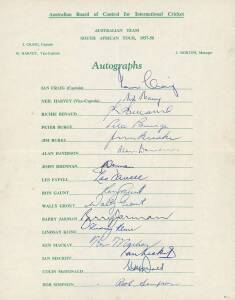 Australian Board of Control for International Cricket
AUSTRALIAN TEAM
SOUTH AFRICAN TOUR, 1957-58
I. CRAIG, Captain
N. HARVEY, Vice-Captain
J. NORTON, Manager
Autographs
IAN CRAIG (Captain) Ian Craig
NEIL HARVEY (Vice-Captain) Neil Harvey
RICHIE BENAUD R Benaud
PETER BURGE Peter Burge
JIM BURKE Jim Burke
ALAN DAVIDSON Alan Davidson
JOHN DRENNAN
LES FAVELL Les Favell
RON GAUNT Ron Gaunt
WALLY GROUT Wally Grout
BARRY JARMAN Barry Jarman
LINDSAY KLINE Lindsay Kline
KEN MACKAY Ken Mackay
IAN MECKIFF Ian Meckiff
COLIN McDONALD
BOB SIMPSON Bob Simpson